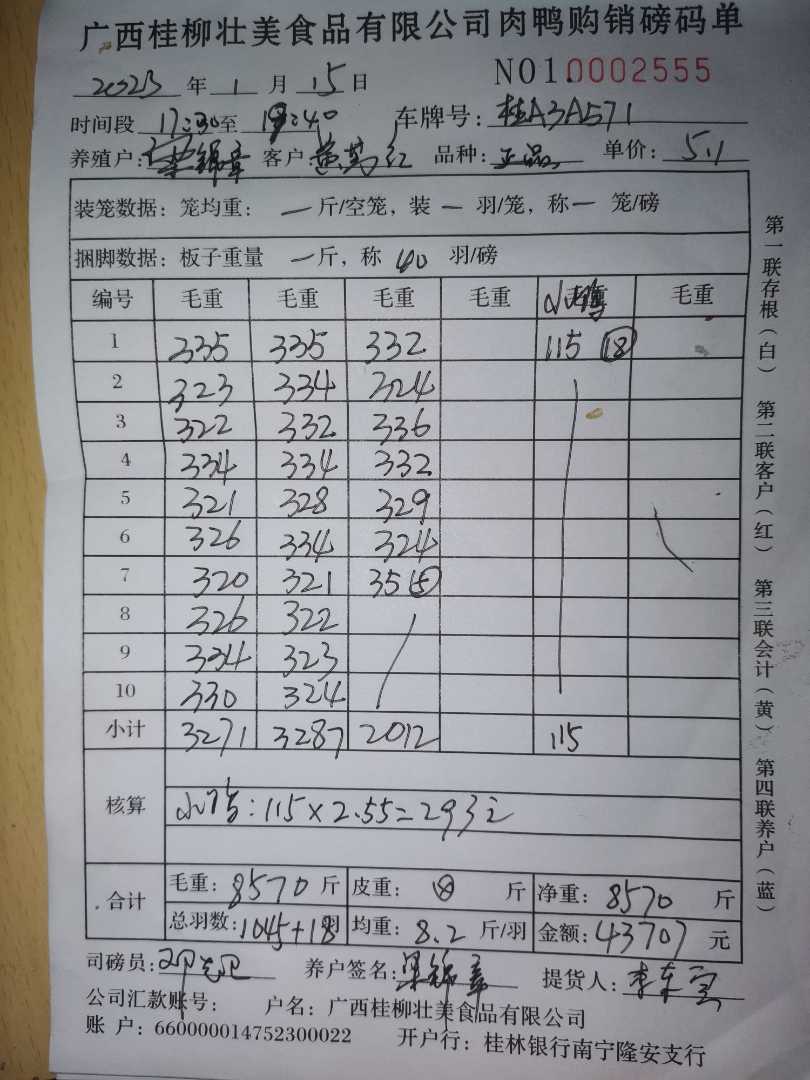 广西桂柳壮美食品有限公司肉鸭购销磅码单
2023年1月15日 NO1.0002555
时间段 17:30至 19:40 车牌号: 桂A3A571
养殖户: 梁锦章 客户: 黄万红 品种: 正品 单价: 5.1
装笼数据: 笼均重: 一斤/空笼, 装一羽/笼, 称一笼/磅
捆脚数据: 板子重量 一斤, 称 40 羽/磅
编号 毛重 毛重 毛重 毛重 毛重
1 335 335 332 115 18
2 323 334 324
3 322 332 336
4 334 334 332
5 321 328 329
6 326 334 324
7 320 321 35 5
8 326 322
9 334 323
10 330 324
小计 3271 3287 2012 115
核算 115×2.55=293元
合计 毛重: 8570 斤 皮重: 斤 净重: 8570 斤
总羽数: 1045+18羽 均重: 8.2 斤/羽 金额: 43707 元
司磅员: 养户签名: 梁锦章 提货人:
公司汇款账号: 户名: 广西桂柳壮美食品有限公司
账 户: 660000014752300022 开户行: 桂林银行南宁隆安支行
第一联存根(白) 第二联客户(红) 第三联会计(黄) 第四联养户(蓝)